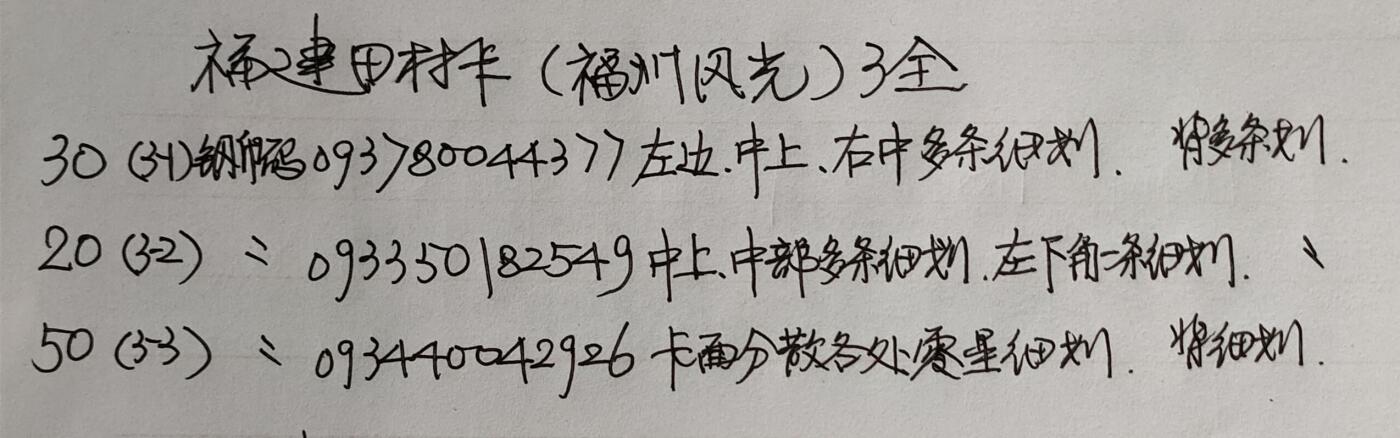 福建田村卡（福州风光）3全
30（3-1）钢印码093780044377左边.中上、右中多条细划. 背多条划.
20（3-2）〃 093350182549中上、中部多条细划.左下角一条细划. 〃
50（3-3）〃 093440042926卡面分散各处零星细划. 背细划.